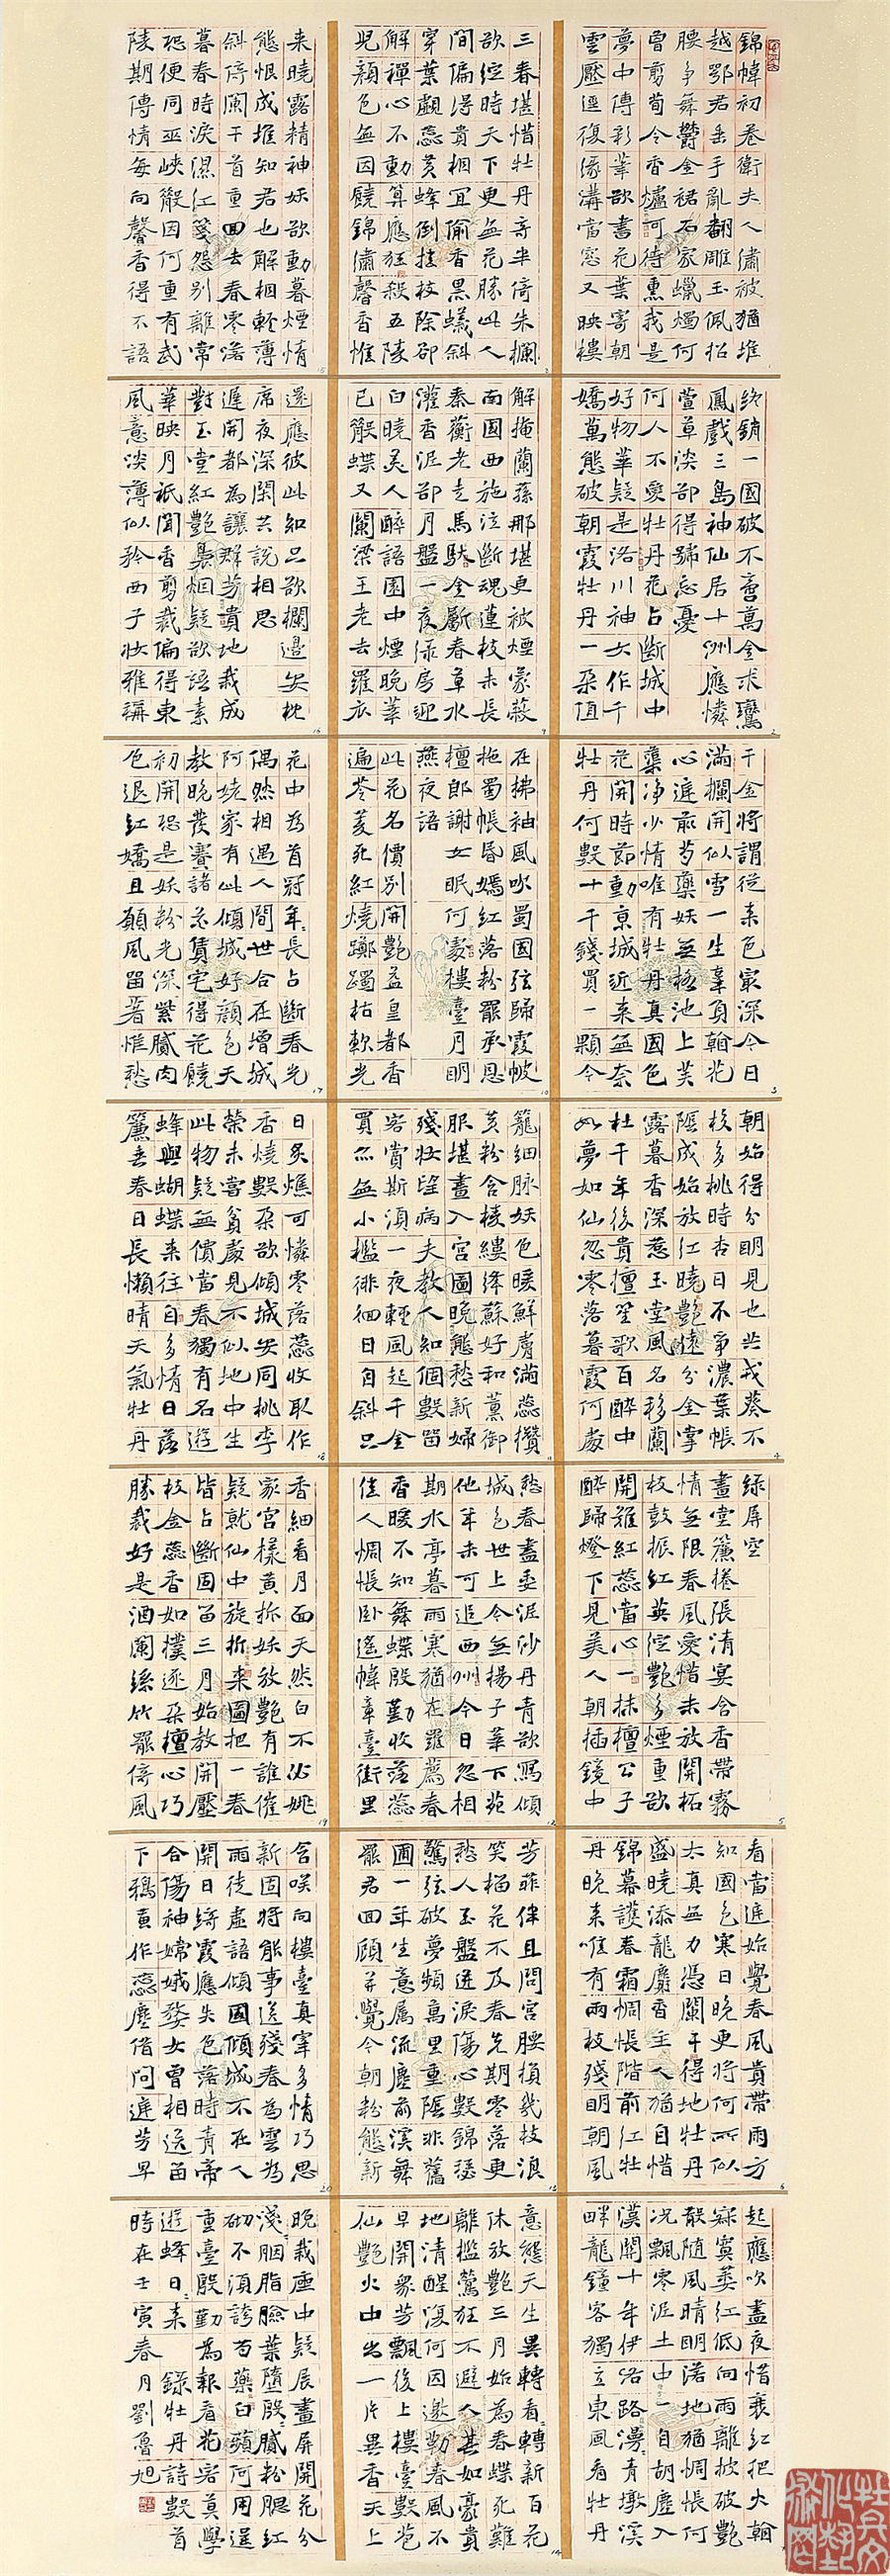 錦幃初卷衛夫人繡被猶堆
越鄂君垂手亂翻雕玉佩招
腰爭舞鬱金裙石家蠟燭何
曾剪荀令香爐可待熏我是
夢中傳彩筆欲書花葉寄朝
雲壓逕復緣溝當窓又映樓
終銷一國破不啻萬金求鸞
鳳戲三島神仙居十洲應憐
萱草淡卻得號忘憂
何人不愛牡丹花占斷城中
好物華疑是洛川神女作千
嬌萬態破朝霞牡丹一朵值
千金將謂從來色最深今日
滿欄開似雪一生辜負看花
心庭前芍藥妖無格池上芙
蕖淨少情唯有牡丹真國色
花開時節動京城近來無奈
牡丹何數十千錢買一顆今
朝始得分明見也共戎葵不
校多桃時杏日不爭濃葉帳
陰成始放紅曉艷遠分金掌
露暮香深惹玉堂風名移蘭
杜千年後貴擅笙歌百醉中
如夢如仙忽零落暮霞何處
綠屏空
畫堂簾捲張清宴含香帶霧
情無限春風愛惜未放開柘
枝鼓振紅英綻艷多煙重欲
開難紅蕊當心一抹檀公子
醉歸燈下見美人朝插鏡中
看當庭始覺春風貴帶雨方
知國色寒日晚更將何所似
太真無力憑闌干得地牡丹
盛曉添龍麝香主人猶自惜
錦幕護春霜惆悵階前紅牡
丹晚來唯有兩枝殘明朝風
起應吹盡夜惜衰紅把火看
寂寞萎紅低向雨離披破艷
散隨風晴明落地猶惆悵何
況飄零泥土中一自胡塵入
漢關十年伊洛路漫漫青墩溪
畔龍鍾客獨立東風看牡丹
三春堪惜牡丹奇半倚朱欄
欲綻時天下更無花勝此人
間偏得貴相宜偷香黑蟻斜
穿葉覷蕊黃蜂倒挂枝除卻
解禪心不動算應狂殺五陵
兒顏色無因饒錦繡馨香惟
解掩蘭蓀那堪更被煙蒙蔽
南國西施泣斷魂蓮枝未長
秦蘅老走馬馱金斸春草水
灌香泥卻月盤一夜綠房迎
白曉美人醉語園中煙晚華
已散蝶又闌梁王老去羅衣
在拂袖風吹蜀國弦歸霞帔
拖蜀帳昏嫣紅落粉罷承恩
檀郎謝女眠何處樓臺月明
燕夜語
此花名價別開艷益皇都香
遍苓菱死紅燒躑躅枯軟光
籠細脈妖色暖鮮膚滿蕊攢
黃粉含棱縷絳蘇好和薰御
服堪畫入宮圖晚態愁新婦
殘妝望病夫教人知個數留
客賞斯須一夜輕風起千金
買亦無小檻徘徊日自斜只
愁春盡委泥沙丹青欲寫傾
城色世上今無楊子華下苑
他年未可追西州今日忽相
期水亭暮雨寒猶在羅薦春
香暖不知舞蝶殷勤收落蕊
佳人惆悵臥遙幃章臺街里
芳菲伴且問宮腰損幾枝浪
笑榴花不及春先期零落更
愁人玉盤迸淚傷心數錦瑟
驚弦破夢頻萬里重陰非舊
圃一年生意屬流塵前溪舞
罷君回顧并覺今朝粉態新
意態天生異轉看轉新百花
休放艷三月始為春蝶死難
離檻鶯狂不避人其如豪貴
地清醒復何因邀勒春風不
早開眾芳飄後上樓臺數苞
仙艷火中出一片異香天上
來曉露精神妖欲動暮煙情
態恨成堆知君也解相輕薄
斜倚闌干首重回去春零落
暮春時淚濕紅箋怨別離常
恐便同巫峽散因何重有武
陵期傳情每向馨香得不語
還應彼此知只欲欄邊安枕
席夜深閑共說相思
遲開都為讓群芳貴地栽成
對玉堂紅艷裊烟疑欲語素
華映月祇聞香剪裁偏得東
風意淡薄似矜西子妝雅稱
花中為首冠年年長占斷春光
偶然相遇人間世合在增城
阿姥家有此傾城好顏色天
教晚發賽諸花賃宅得花饒
初開恐是妖粉光深紫膩肉
色退紅嬌且願風留著惟愁
日炙燋可憐零落蕊收取作
香燒數朵欲傾城安同桃李
榮未嘗貧處見不似地中生
此物疑無價當春獨有名遊
蜂與蝴蝶來往自多情日落
簾垂春日長懶晴天氣牡丹
香細看月面天然白不必姚
家宮樣黃拆妖放艷有誰催
疑就仙中旋折來圖把一春
皆占斷固留三月始教開壓
枝金蕊香如撲逐朵檀心巧
勝裁好是酒闌絲竹罷倚風
含笑向樓臺真宰多情巧思
新固將能事送殘春為雲為
雨徒虛語傾國傾城不在人
開日綺霞應失色落時青帝
合傷神嫦娥婺女曾相送留
下鴉黃作蕊塵借問庭芳早
晚栽座中疑展畫屏開花分
淺淺胭脂臉葉墮殷殷膩松腮紅
砌不須誇芍藥白蘋何用逞
重臺殷勤為報看花客莫學
遊蜂日日來 錄牡丹詩數首
時在壬寅春月劉魯旭